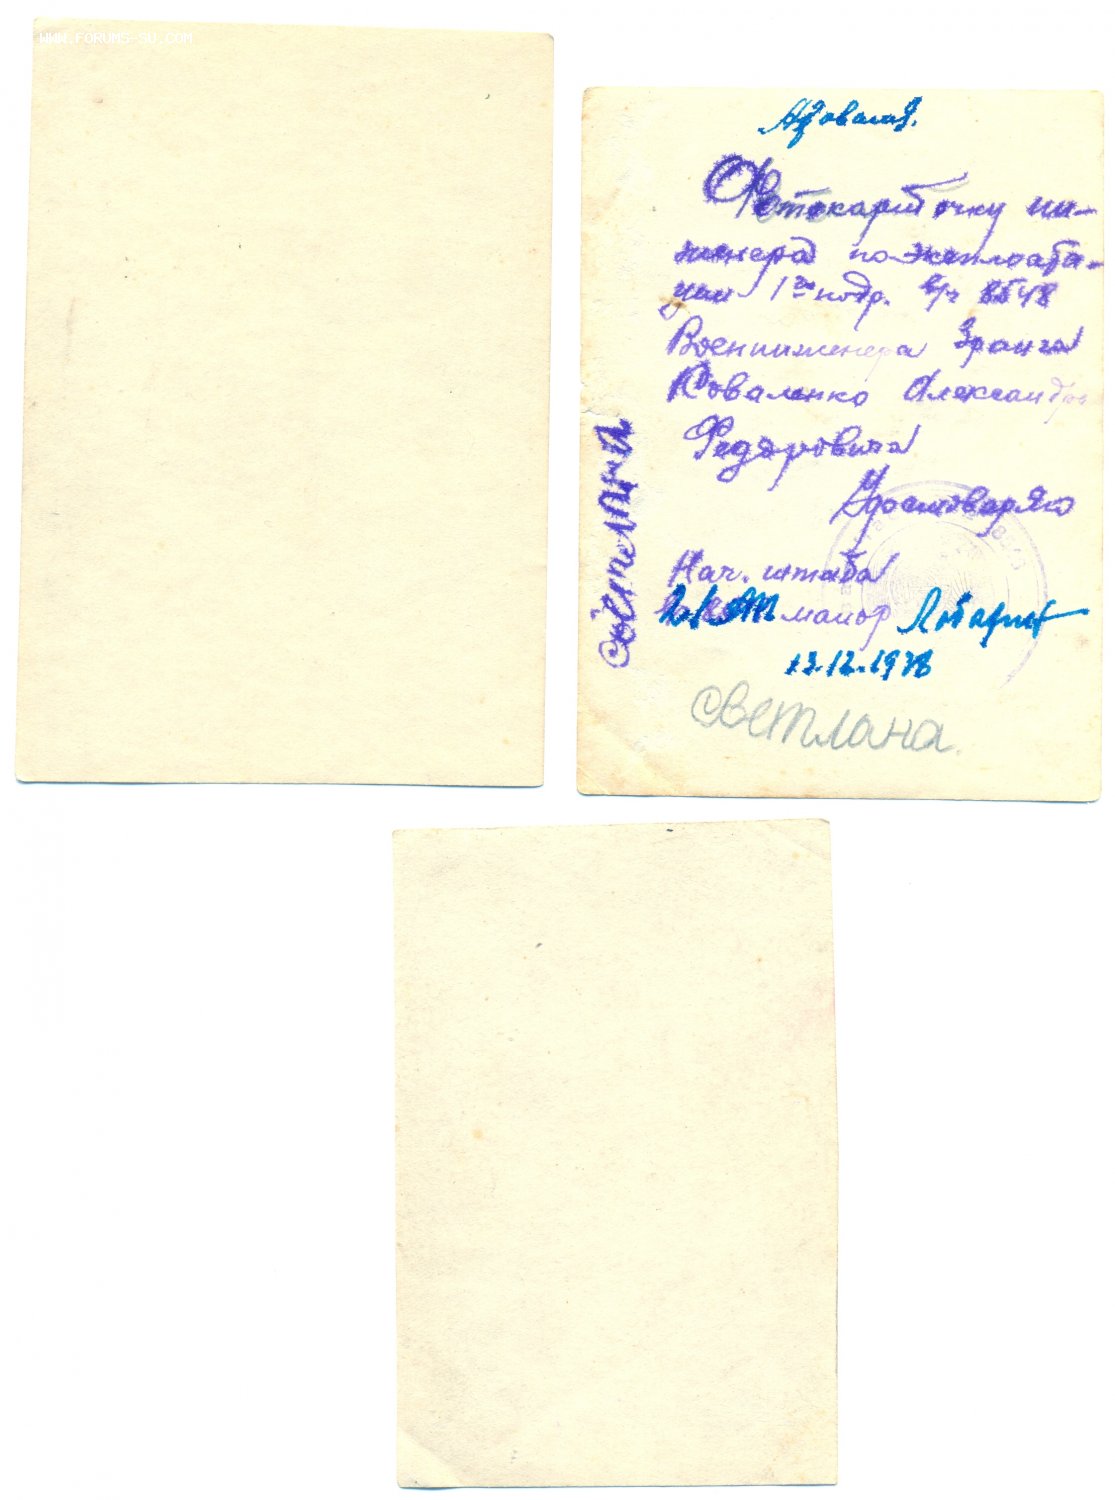 WWW.FORUMS-SU.COM
Фотокарточку ин-
женера по эксплоата-
ции 1го подр. в/ч 8548
Военинженера 3 ранга
Коваленко Александра
Федоровича
Удостоверяю
Нач. штаба
майор
13.12.1938
светлана
светлана.